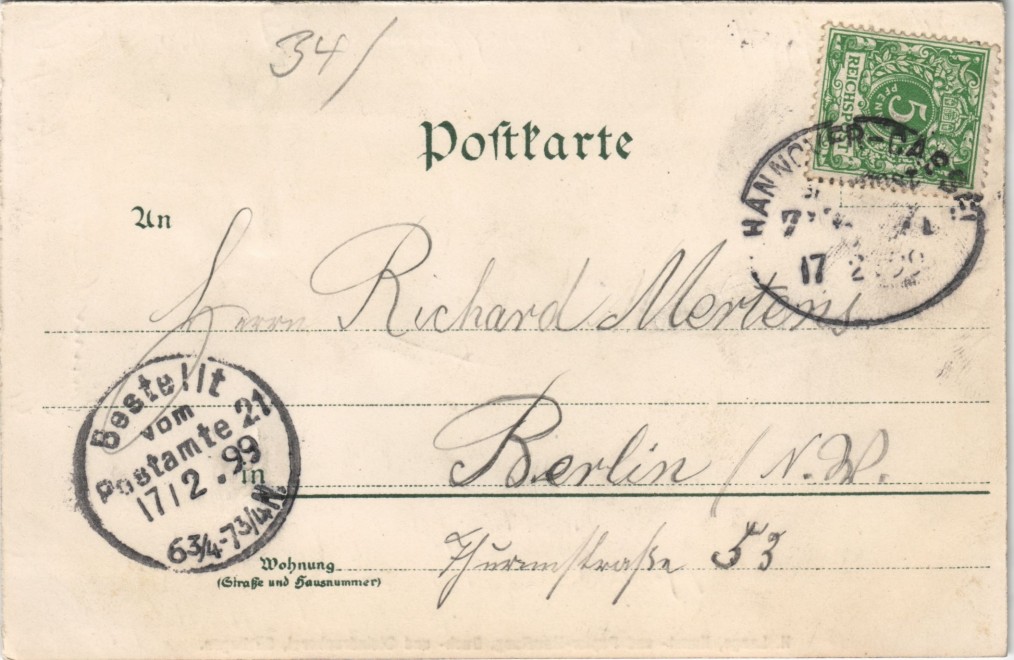 34/
Postkarte
REICHSPOST
5
PFENNIG
HANNOVER-CASSEL
17 2 99
An
Herrn Richard Mertens
Bestellt
vom
Postamte 21
17/2.99
6¾-7¾N.
in Berlin / N.W.
Wohnung
(Straße und Hausnummer)
Thurmstraße 53